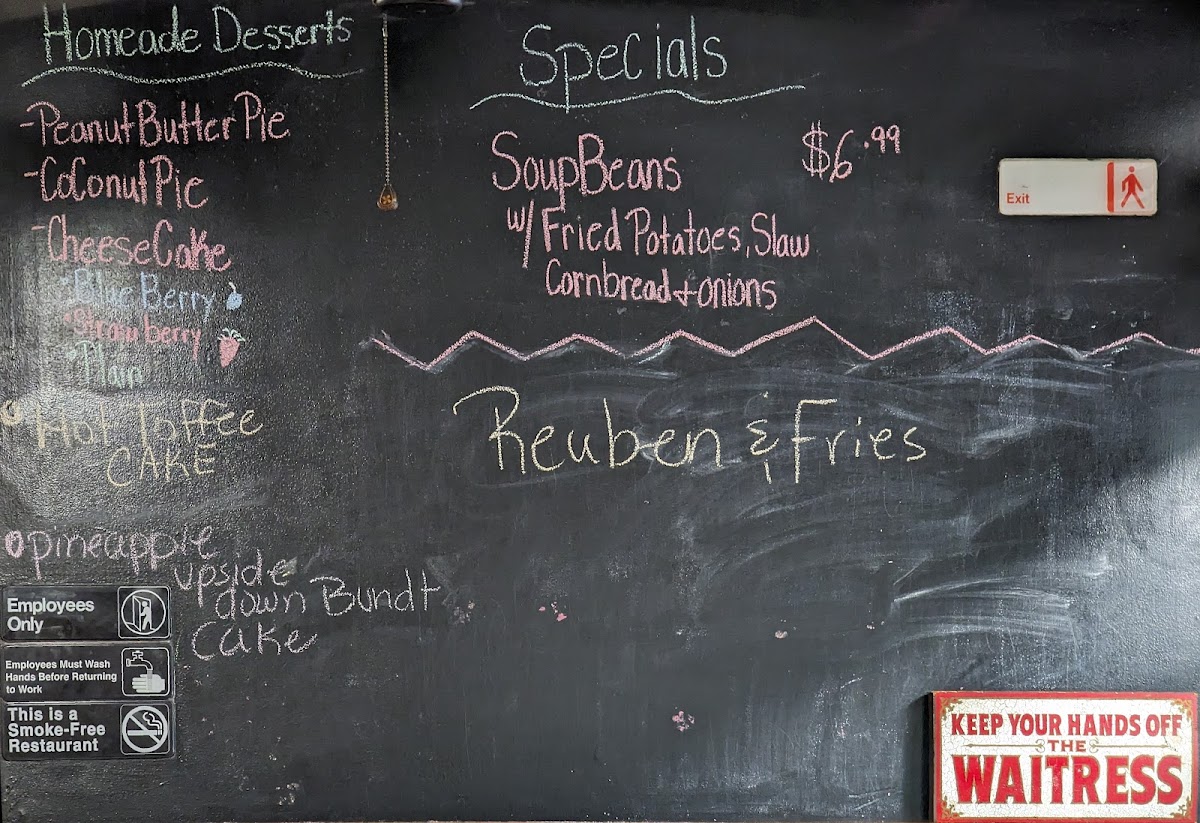 Homeade Desserts
-Peanut Butter Pie
-CoConut Pie
-CheeseCake
•Blue Berry
•Strawberry
•Plain
Hot Toffee
CAKE
pineapple
upside
down Bundt
Cake
Specials
SoupBeans $6.99
w/ Fried Potatoes, Slaw
Cornbread + onions
Reuben & Fries
Exit
Employees
Only
Employees Must Wash
Hands Before Returning
to Work
This is a
Smoke-Free
Restaurant
KEEP YOUR HANDS OFF
THE
WAITRESS